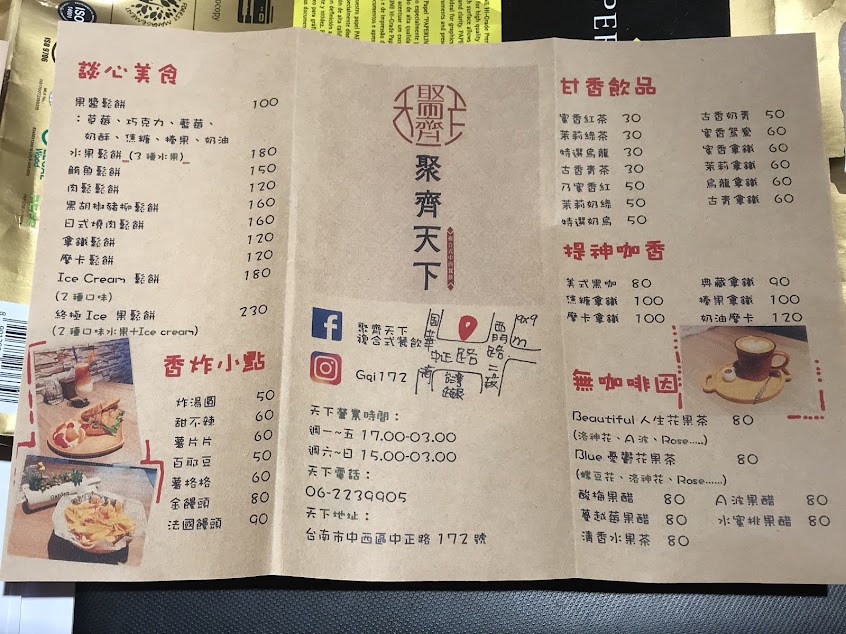 談心美食
果醬鬆餅 100
：草莓、巧克力、藍莓、
奶酥、焦糖、榛果、奶油
水果鬆餅_(3種水果)_ 180
鮪魚鬆餅 150
肉鬆鬆餅 120
黑胡椒豬柳鬆餅 160
日式燒肉鬆餅 160
拿鐵鬆餅 120
摩卡鬆餅 120
Ice Cream 鬆餅 180
(2種口味)
終極 Ice 果鬆餅 230
(2種口味水果+Ice cream)
香炸小點
炸湯圓 50
甜不辣 60
薯片片 60
百耶豆 50
薯格格 60
金饅頭 80
法國饅頭 90
天下
聚齊
聚齊天下
複合式中西餐飲
聚齊天下
複合式餐飲
Gqi172
國華
西門路二段
中正路
9x9
天下營業時間：
週一~五 17.00-03.00
週六~日 15.00-03.00
天下電話：
06-2239905
天下地址：
台南市中西區中正路 172 號
甘香飲品
蜜香紅茶 30
茉莉綠茶 30
特選烏龍 30
古香青茶 30
乃蜜香紅 50
茉莉奶綠 50
特選奶烏 50
古香奶青 50
蜜香鴛鴦 60
蜜香拿鐵 60
茉莉拿鐵 60
烏龍拿鐵 60
古青拿鐵 60
提神咖香
美式黑咖 80
焦糖拿鐵 100
摩卡拿鐵 100
典藏拿鐵 90
榛果拿鐵 100
奶油摩卡 120
無咖啡因
Beautiful 人生花果茶 80
(洛神花、A波、Rose.....)
Blue 憂鬱花果茶 80
(蝶豆花、洛神花、Rose......)
酸梅果醋 80
A波果醋 80
蔓越莓果醋 80
水蜜桃果醋 80
清香水果茶 80